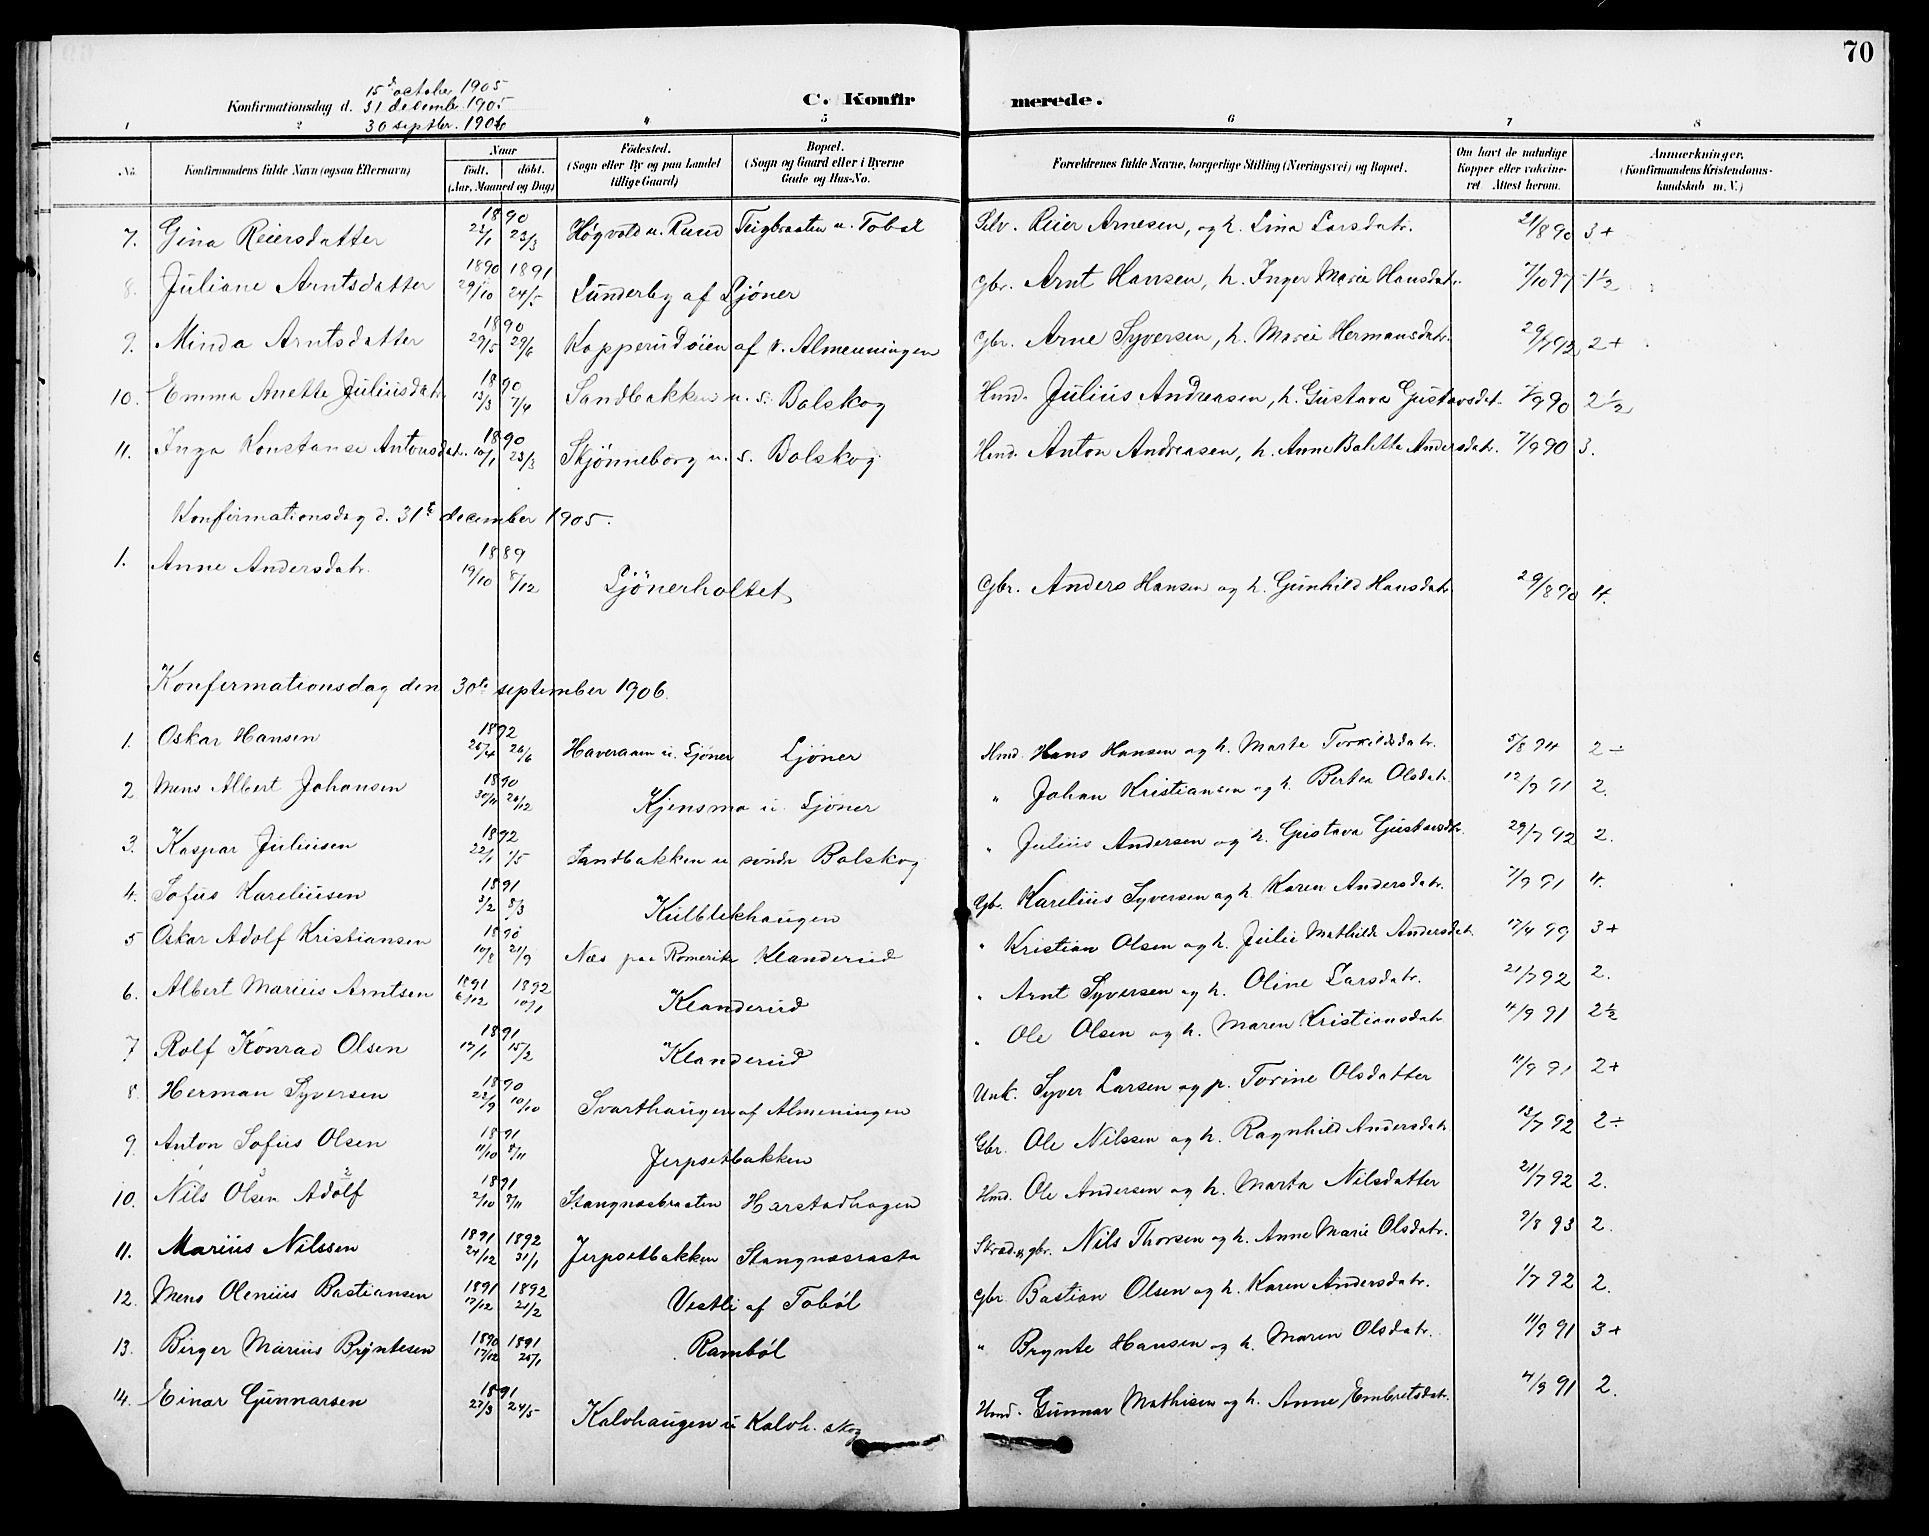 70
15d october 1905
Konfirmationsdag d. 31 decembr. 1905 C. Konfirmerede.
30 septbr. 1906
1 2 4 5 6 7 8
No. Konfirmandens fulde Navn (ogsaa Efternavn) Naar født. døbt. (Aar, Maaned og Dag) Fødested. (Sogn eller By og paa Landet tillige Gaard) Bopæl. (Sogn og Gaard eller i Byerne Gade og Hus-No. Forældrenes fulde Navne, borgerlige Stilling (Næringsvei) og Bopæl. Om havt de naturlige Kopper eller vakcineret. Attest herom. Anmærkninger. (Konfirmandens Kristendomskundskab m. V.)
7. Gina Reiersdatter 1890 23/1 23/3 Høgvold u. Rund Teigbraaten u. Tobøl Selv. Reier Arnesen, og h. Lina Larsdatr. 21/8 90 3+
8. Juliane Arntsdatter 1890 29/10 1891 24/5 Lunderby af Sjøner Gbr. Arnt Hansen, h. Inger Marie Hansdatr. 7/10 97 1½
9. Minda Arntsdatter 1890 29/5 29/6 Kopperudsøien af v. Almenningen Gbr. Arne Syversen, h. Marie Hermansdatr. 29/7 92 2+
10. Emma Anette Juliusdatr. 1890 13/3 7/4 Sandbakken u. s. Bolskog Hmd. Julius Andreasen, h. Gustava Gustavsdat. 7/9 90 2½
11. Inga Konstanse Antonsdatr. 1890 10/1 23/3 Skjønneborg u. s. Bolskog Hmd. Anton Andreasen, h. Anne Bolette Andersdatr. 7/9 90 3.
Konfirmationsdag d. 31te december 1905.
1. Anne Andersdatr. 1889 19/10 8/12 Sjønerholtet Gbr. Anders Hansen og h. Gunhild Hansdatr. 29/8 90 4.
Konfirmationsdag den 30te september 1906.
1. Oskar Hansen 1892 25/4 26/6 Haveraaen u. Sjöner Sjöner Hmd. Hans Hansen og h. Marte Torkildsdatr. 5/8 94 2÷
2 Mens Albert Johansen 1890 30/11 26/12 Kjensmo u. Sjöner " Johan Kristiansen og h. Bertea Olsdatr. 12/9 91 2.
3. Kaspar Juliusen 1892 22/1 1/5 Sandbakken u søndr Bolskog " Julius Andersen og h. Gustava Gustavsdtr. 29/7 92 2.
4. Sofus Kareliusen 1891 3/2 8/3 Kulblikhaugen Gbr. Karelius Syversen og h. Karen Andersdatr. 7/9 91 4.
5 Oskar Adolf Kristiansen 1890 10/8 21/9 Næs paa Romerike Klanderud " Kristian Olsen og h. Julie Mathilde Andersdat. 17/4 99 3+
6. Albert Marius Arntsen 1891 6/12 1892 10/1 Klanderud " Arnt Syversen og h. Oline Larsdatr. 21/7 92 2.
7 Rolf Konrad Olsen 1891 17/1 15/2 Klanderud " Ole Olsen og h. Maren Kristiansdatr 4/9 91 2½
8. Herman Syversen 1890 22/9 10/10 Svarthaugen af Almeningen Unk. Syver Larsen og p. Torine Olsdatter 11/9 91 2+
9. Anton Sofus Olsen 1891 11/10 8/11 Jerpsetbakken Gbr. Ole Nilssen og h. Ragnhild Andersdatr 13/7 92 2÷
10. Nils Olsen Adolf 1891 2/10 7/11 Stangnæsbraaten Harstadhagen Hmd. Ole Andersen og h. Marta Nilsdatter 21/7 92 2.
11. Marius Nilssen 1891 24/12 1892 31/1 Jerpsetbakken Stangnæsrasta Skræd. gbr. Nils Thorsen og h. Anne Marie Olsdatr. 7/8 93 2.
12. Mens Olenius Bastiansen 1891 17/12 1892 21/2 Vestli af Tobøl Gbr Bastian Olsen og h. Karen Andersdatr. 1/7 92 2.
13. Birger Marius Bryntesen 1890 17/12 1891 25/1 Rambøl " Brynte Hansen og h. Maren Olsdatr. 11/9 91 3+
14. Einar Gunnarsen 1891 27/3 24/5 Kalvhaugen u Kalvh. skog Hmd. Gunnar Mathisen og h. Anne Embretsdatr. 4/9 91 2.